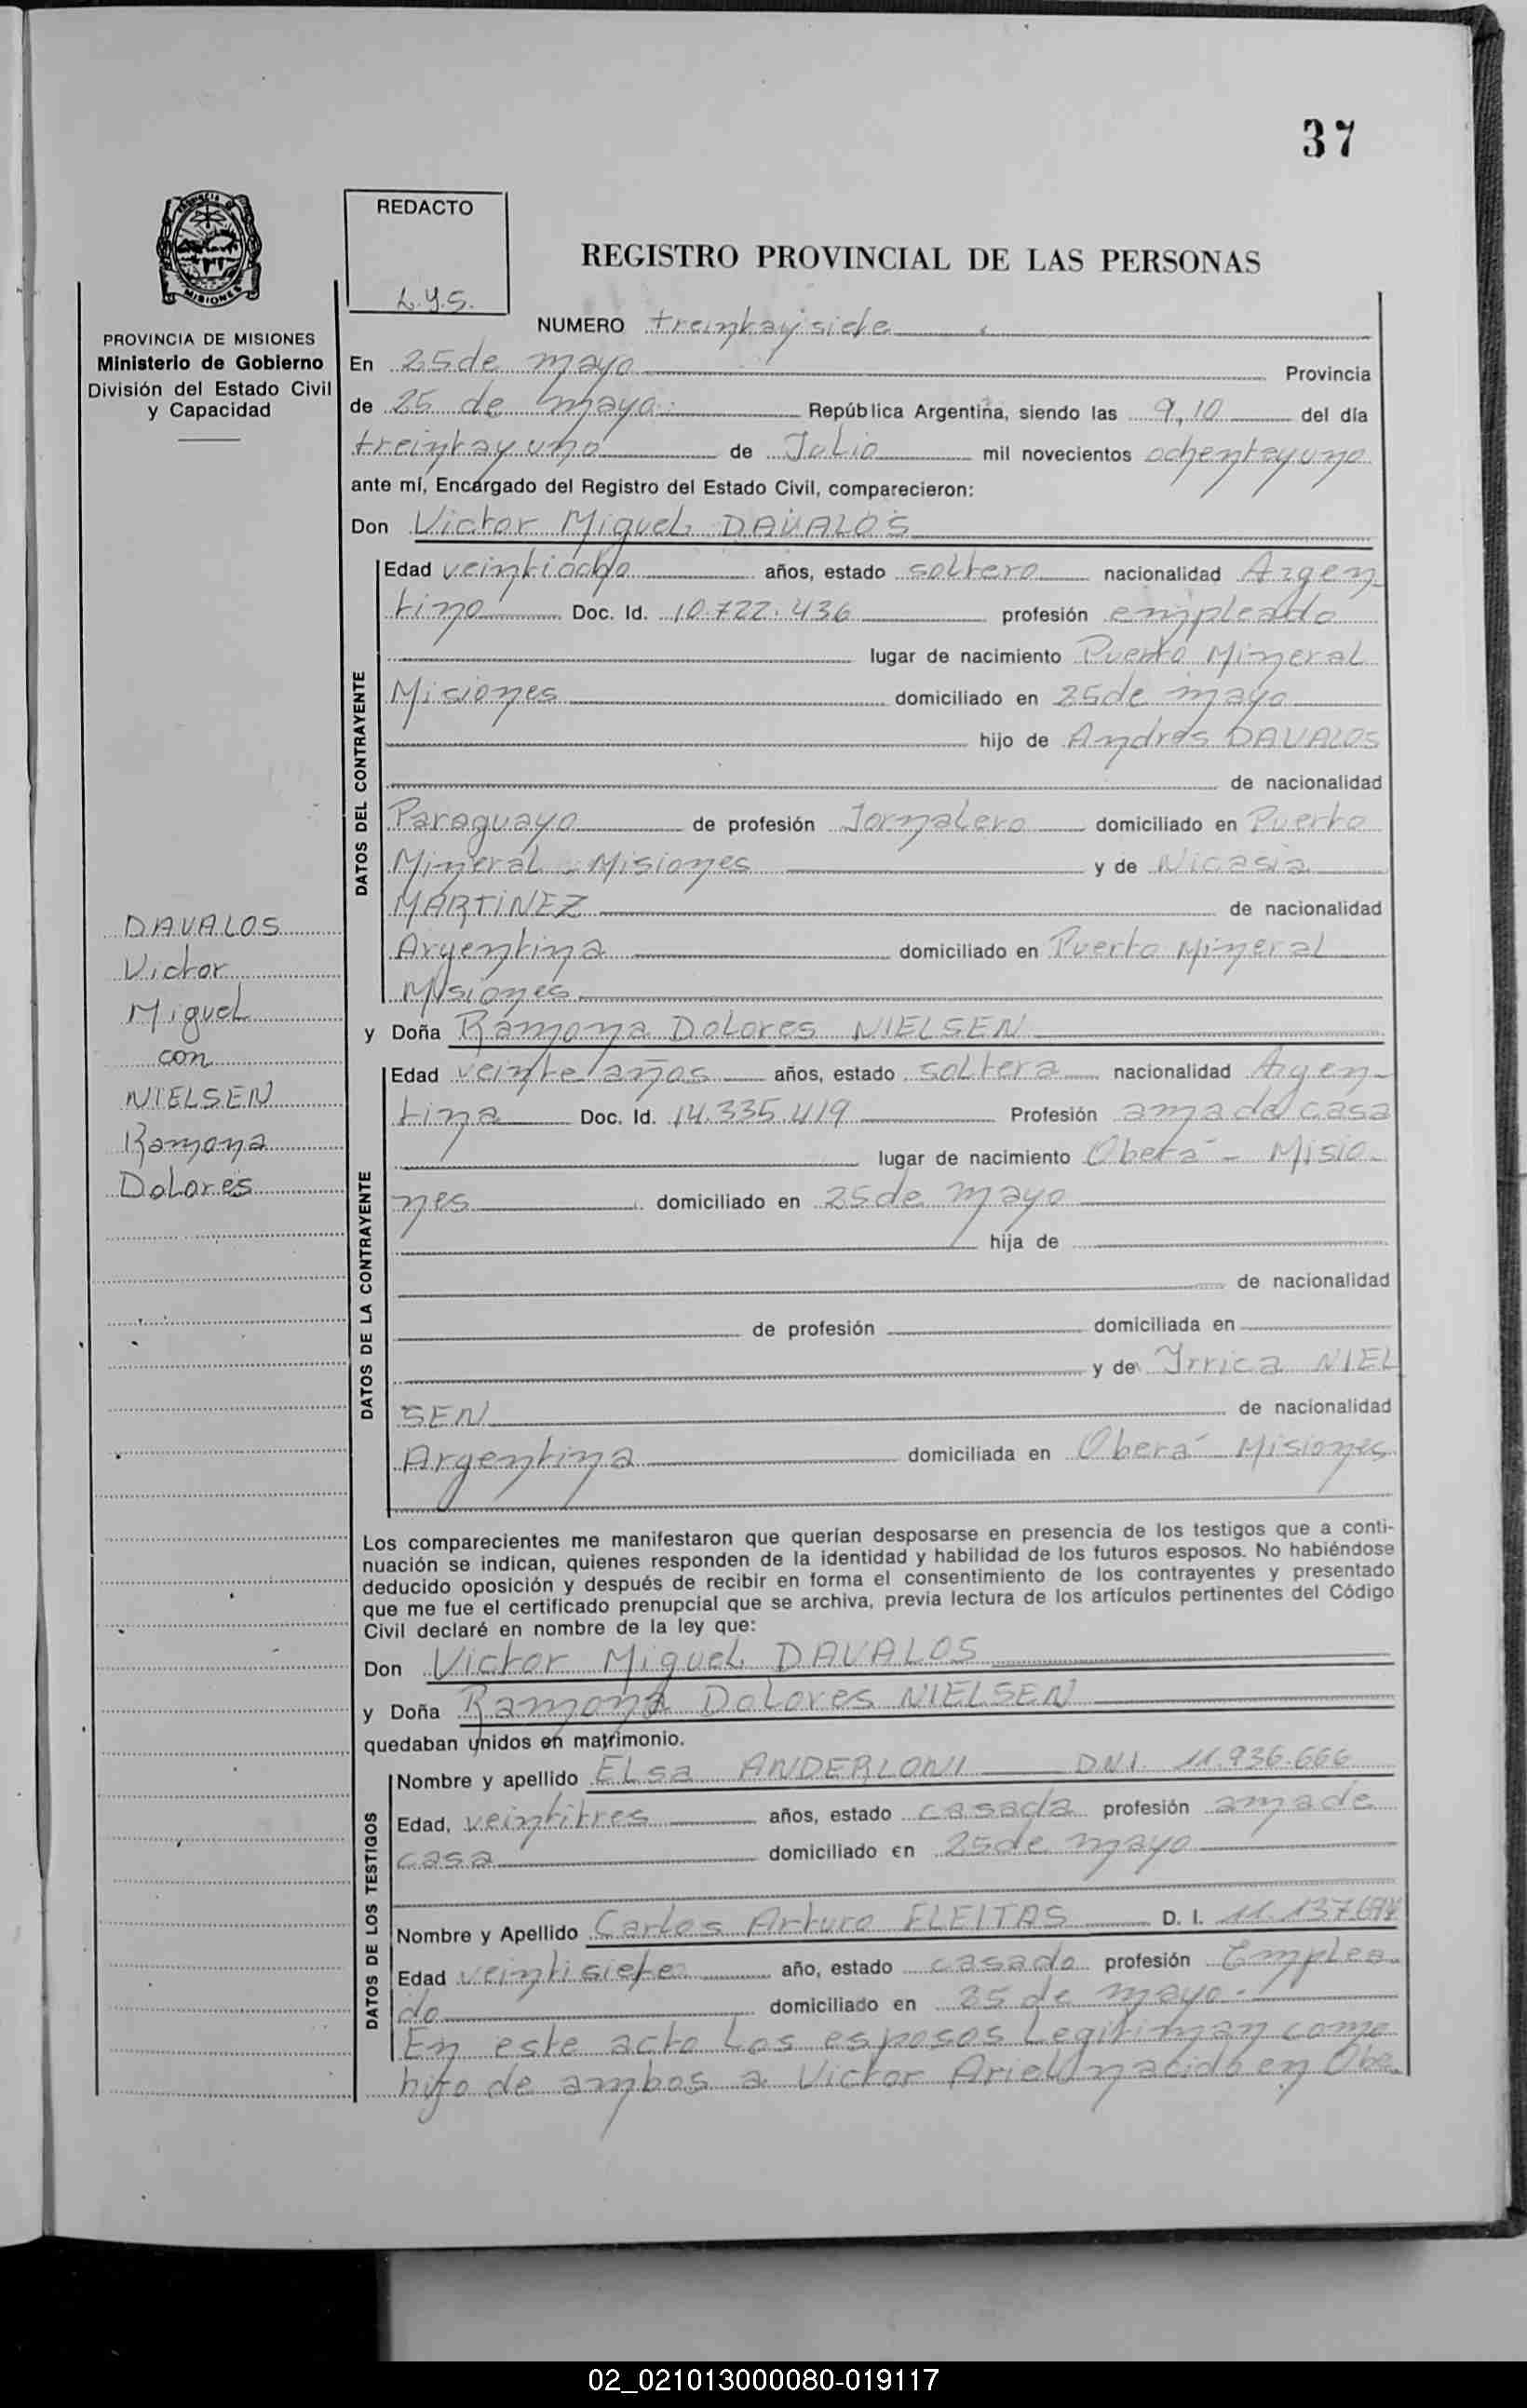 37
REDACTO
L.y.S.
PROVINCIA DE MISIONES
Ministerio de Gobierno
División del Estado Civil
y Capacidad
REGISTRO PROVINCIAL DE LAS PERSONAS
NUMERO treintaysiete
En 25 de mayo Provincia
de 25 de mayo República Argentina, siendo las 9,10 del día
treintay uno de Julio mil novecientos ochentayuno
ante mí, Encargado del Registro del Estado Civil, comparecieron:
Don Victor Miguel DAVALOS
DATOS DEL CONTRAYENTE
Edad veintiocho años, estado soltero nacionalidad Argen-
tino Doc. Id. 10.722.436 profesión empleado
lugar de nacimiento Puerto Mineral
Misiones domiciliado en 25 de mayo
hijo de Andres DAVALOS
de nacionalidad
Paraguayo de profesión Jornalero domiciliado en Puerto
Mineral - Misiones y de Nicasia
MARTINEZ de nacionalidad
Argentina domiciliado en Puerto Mineral
Misiones
DAVALOS
Victor
Miguel
con
NIELSEN
Ramona
Dolores
y Doña Ramona Dolores NIELSEN
DATOS DE LA CONTRAYENTE
Edad veinte años años, estado soltera nacionalidad Argen-
tina Doc. Id. 14.335.419 Profesión ama de casa
lugar de nacimiento Oberá - Misio-
nes domiciliado en 25 de mayo
hija de
de nacionalidad
de profesión domiciliada en
y de Yrrica NIEL
SEN de nacionalidad
Argentina domiciliada en Oberá - Misiones
Los comparecientes me manifestaron que querían desposarse en presencia de los testigos que a conti-
nuación se indican, quienes responden de la identidad y habilidad de los futuros esposos. No habiéndose
deducido oposición y después de recibir en forma el consentimiento de los contrayentes y presentado
que me fue el certificado prenupcial que se archiva, previa lectura de los artículos pertinentes del Código
Civil declaré en nombre de la ley que:
Don Victor Miguel DAVALOS
y Doña Ramona Dolores NIELSEN
quedaban unidos en matrimonio.
DATOS DE LOS TESTIGOS
Nombre y apellido Elsa ANDERLONI DNI. 11.936.666
Edad, veintitres años, estado casada profesión ama de
casa domiciliado en 25 de mayo
Nombre y Apellido Carlos Arturo FLEITAS D. I.
Edad veintisiete año, estado casado profesión Emplea-
do domiciliado en 25 de mayo.
En este acto los esposos Legitiman como
hijo de ambos a Victor Ariel nacido en Obe-
02_021013000080-019117